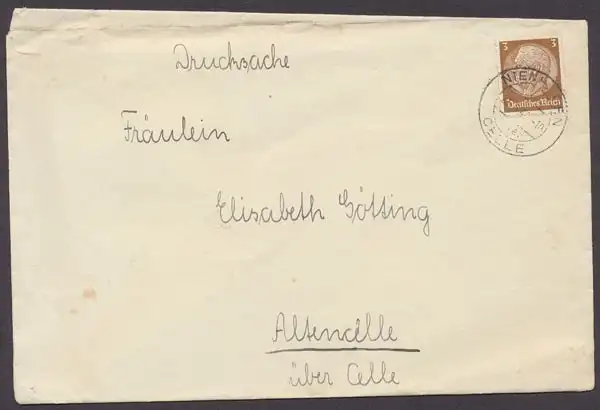 Drucksache
3 3
Deutsches Reich
CELLE
Fräulein
Elisabeth Götting
Altencelle
über Celle